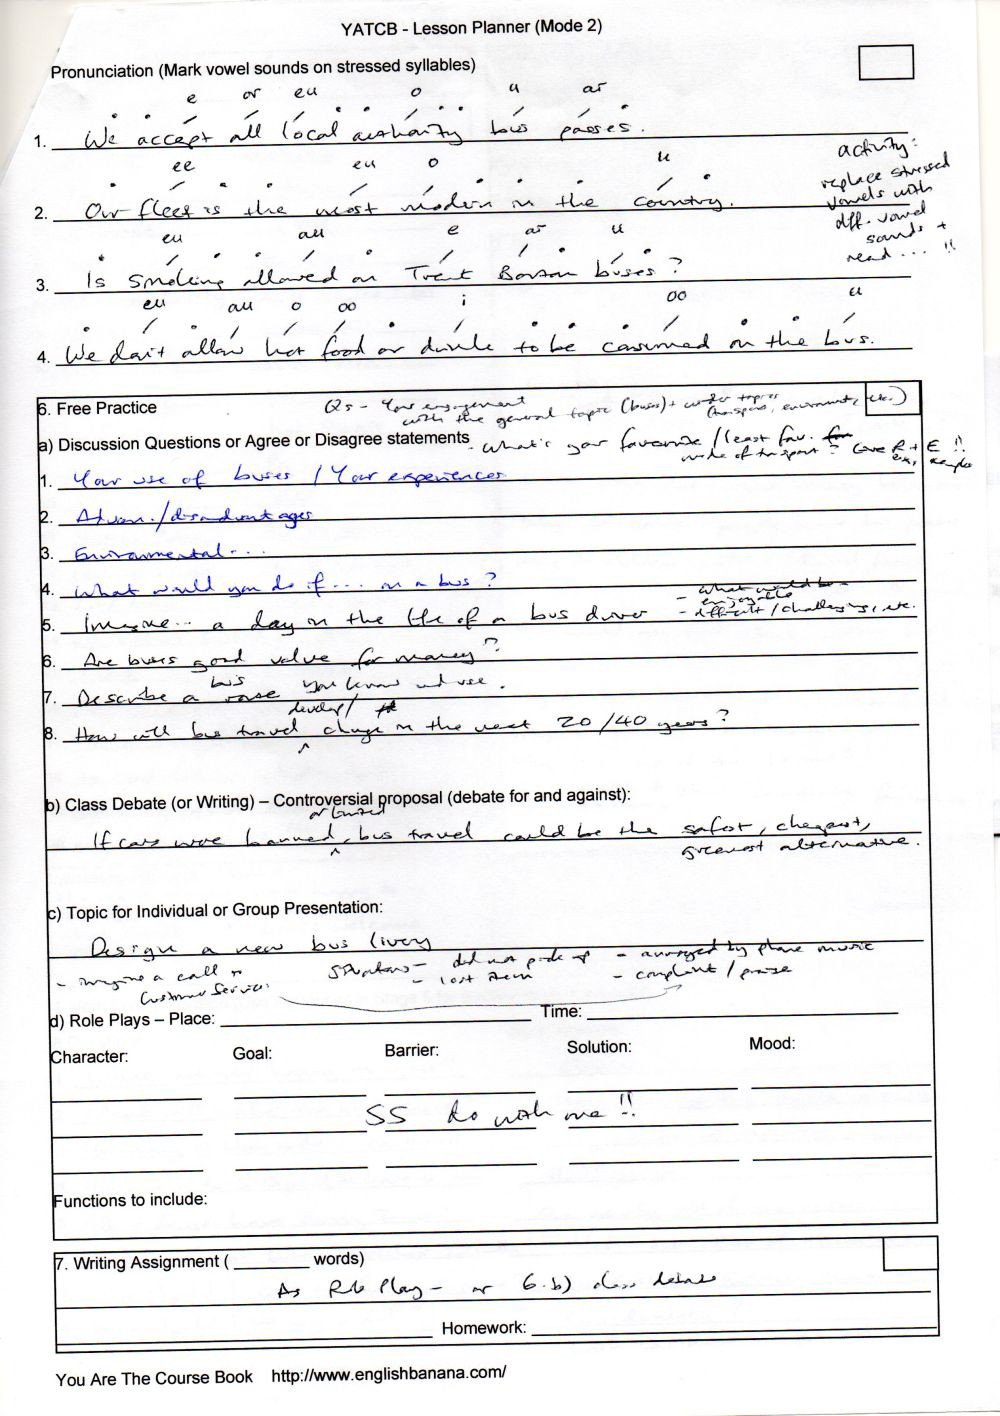 YATCB - Lesson Planner (Mode 2)
Pronunciation (Mark vowel sounds on stressed syllables)
e or eu o u ar
1. We accept all local authority bus passes.
ee eu o u
2. Our fleet is the most modern in the country.
eu au e ar u
3. Is smoking allowed on Trent Barton buses?
eu au o oo i oo u
4. We don't allow hot food or drink to be consumed on the bus.
activity:
replace stressed
vowels with
diff. vowel
sounds +
read... !!
6. Free Practice
Qs - Your engagement
with the general topic (buses) + wider topics
(transport, environment, etc.)
a) Discussion Questions or Agree or Disagree statements
- What's your favourite / least fav.
mode of transport? Give R + E !!
1. Your use of buses / Your experiences
2. Advan./disadvantages
3. Environmental...
4. What would you do if... on a bus?
5. Imagine... a day in the life of a bus driver
- what would be
enjoyable
- difficult / challenging, etc.
6. Are buses good value for money?
7. Describe a bus route you know and use.
8. How will bus travel develop / change in the next 20/40 years?
b) Class Debate (or Writing) – Controversial proposal (debate for and against):
If cars were banned, or limited bus travel could be the safest, cheapest,
greenest alternative.
c) Topic for Individual or Group Presentation:
Design a new bus livery
- imagine a call to
Customer Services
Situations - did not pick up
- lost item
- annoyed by phone music
- complaint / praise
d) Role Plays – Place: Time:
Character: Goal: Barrier: Solution: Mood:
SS do with me!!
Functions to include:
7. Writing Assignment ( words)
As Role Play - or 6.b) class debate
Homework:
You Are The Course Book http://www.englishbanana.com/